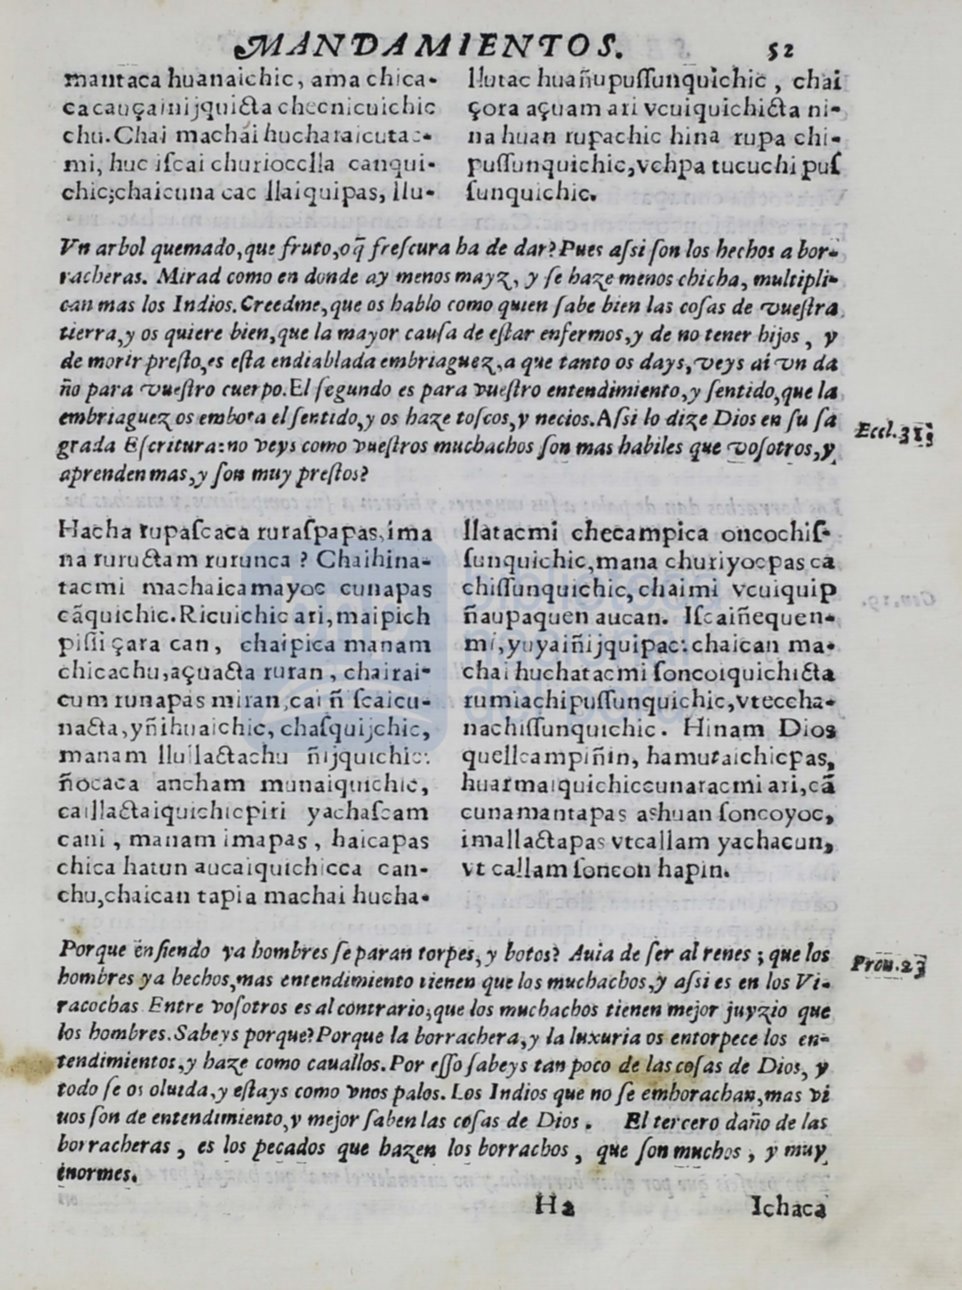 MANDAMIENTOS. 52
mantaca huanaichic, ama chica-
ca cauçainijquicta checnicuichic
chu. Chai machai hucharaicutac-
mi, huc iſcai churioccIla canqui-
chic;chaicuna cac llaiquipas, llu-
llutac huañupuſſunquichic, chai
çora açuam ari vcuiquichicta ni-
na huan rupachic hina rupa chi-
puſſunquichic, vchpa tucuchi puſ
ſunquichic.
Vn arbol quemado, que fruto, o q̃ freſcura ha de dar? Pues aſsi ſon los hechos a bor-
racheras. Mirad como en donde ay menos mayz, y ſe haze menos chicha, multipli-
can mas los Indios. Creedme, que os hablo como quien ſabe bien las coſas de vueſtra
tierra, y os quiere bien, que la mayor cauſa de eſtar enfermos, y de no tener hijos, y
de morir preſto, es eſta endiablada embriaguez, a que tanto os days, veys ai vn da
ño para vueſtro cuerpo. El ſegundo es para vueſtro entendimiento, y ſentido, que la
embriaguez os embota el ſentido, y os haze toſcos, y necios. Aſsi lo dize Dios en ſu ſa
grada Eſcritura: no veys como vueſtros muchachos ſon mas habiles que voſotros, y
aprenden mas, y ſon muy preſtos?
Eccl. 31;
Hacha rupaſcaca ruraſpapas, ima
na ruructam rurunca? Chaihina-
tacmi machaicamayoc cunapas
cãquichic. Ricuichic ari, maipich
piſſi çara can, chaipica manam
chicachu, açuacta ruran, chairai-
cum runapas miran, cai ñ ſcaicu-
nacta, yñihuaichic, chaſquijchic,
manam llullactachu ñijquichic:
ñocaca ancham munaiquichic,
caillactaiquichicpiri yachaſcam
cani, manam imapas, haicapas
chica hatun aucaiquichicca can-
chu, chaican tapia machai hucha-
llatacmi checampica oncochiſ-
ſunquichic, mana churiyocpas ca
chiſſunquichic, chaimi vcuiquip
ñaupaquen aucan. Iſcaiñequen-
mi, yuyaiñijquipac: chaican ma-
chai huchatacmi ſoncoiquichicta
rumiachipuſſunquichic, vteccha-
nachiſſunquichic. Hinam Dios
quellcampiñin, hamutaichicpas,
huarmaiquichiccunatacmi ari, cã
cunamantapas ashuan ſoncoyoc,
imallactapas vtcallam yachacun,
vt callam ſoncon hapin.
Porque enſiendo ya hombres ſe paran torpes, y botos? Auia de ſer al renes; que los
hombres ya hechos, mas entendimiento tienen que los muchachos, y aſsi es en los Vi-
racochas Entre voſotros es al contrario, que los muchachos tienen mejor juyzio que
los hombres. Sabeys porque? Porque la borrachera, y la luxuria os entorpece los en-
tendimientos, y haze como cauallos. Por eſſo ſabeys tan poco de las coſas de Dios, y
todo ſe os oluida, y eſtays como vnos palos. Los Indios que no ſe emborachan, mas vi
uos ſon de entendimiento, y mejor ſaben las coſas de Dios. El tercero daño de las
borracheras, es los pecados que hazen los borrachos, que ſon muchos, y muy
enormes.
Prou. 23
H 2 Ichaca